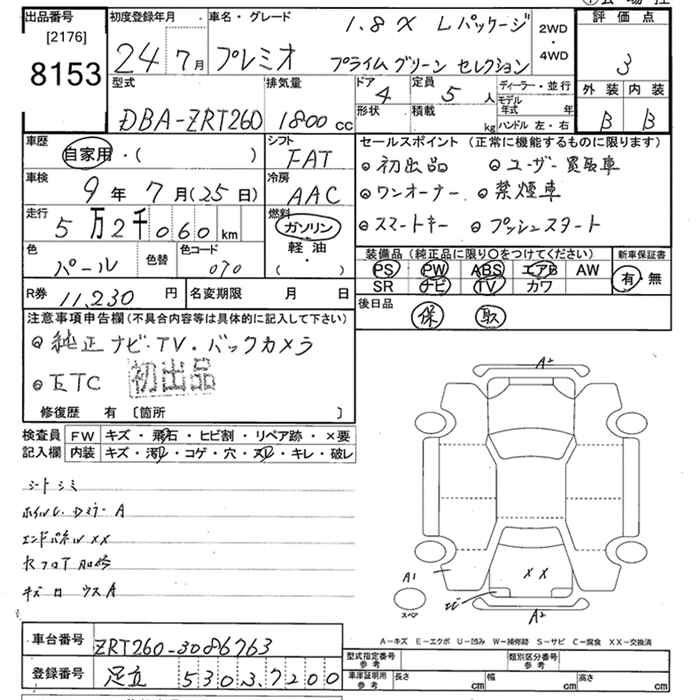 出品番号
[2176]
8153
初度登録年月
24年7月
車名・グレード
1.8 X Lパッケージ
プレミオ プライムグリーン セレクション
2WD・4WD
評価点
3
外装 内装
B B
型式
DBA-ZRT260
排気量
1800cc
ドア
4
定員
5人
ディーラー・並行
形状
積載
kg
モデル年式 年
ハンドル 左・右
車歴
自家用・( )
シフト
FAT
セールスポイント(正常に機能するものに限ります)
車検
9年7月(25日)
冷房
AAC
◎初出品 ◎ユーザー買取車
◎ワンオーナー ◎禁煙車
◎スマートキー ◎プッシュスタート
走行
5万2千060km
燃料
ガソリン
軽・油
( )
色
パール
色替
色コード
070
装備品(純正品に限り〇をつけてください)
新車保証書
PS PW ABS エアB AW
SR ナビ TV カワ
有・無
R券 11,230円
名変期限 月 日
後日品
保 取
注意事項申告欄(不具合内容等は具体的に記入して下さい)
◎純正ナビ・TV・バックカメラ
◎ETC 初出品
修復歴 有 〔箇所 〕
検査員記入欄
FW キズ・飛石・ヒビ割・リペア跡・×要
内装 キズ・汚レ・コゲ・穴・スレ・キレ・破レ
シートシミ
ホイル、Dミラー A
エンドパネル XX
A2
A1
スペア
XX
A2
A-キズ E-エクボ U-凹み W-補修跡 S-サビ C-腐食 XX-交換済
車台番号 ZRT260-3086763
登録番号 足立 530 ス 7200
型式指定番号 参考
類別区分番号 参考
車庫証明用 参考
長さ cm 幅 cm 高さ cm